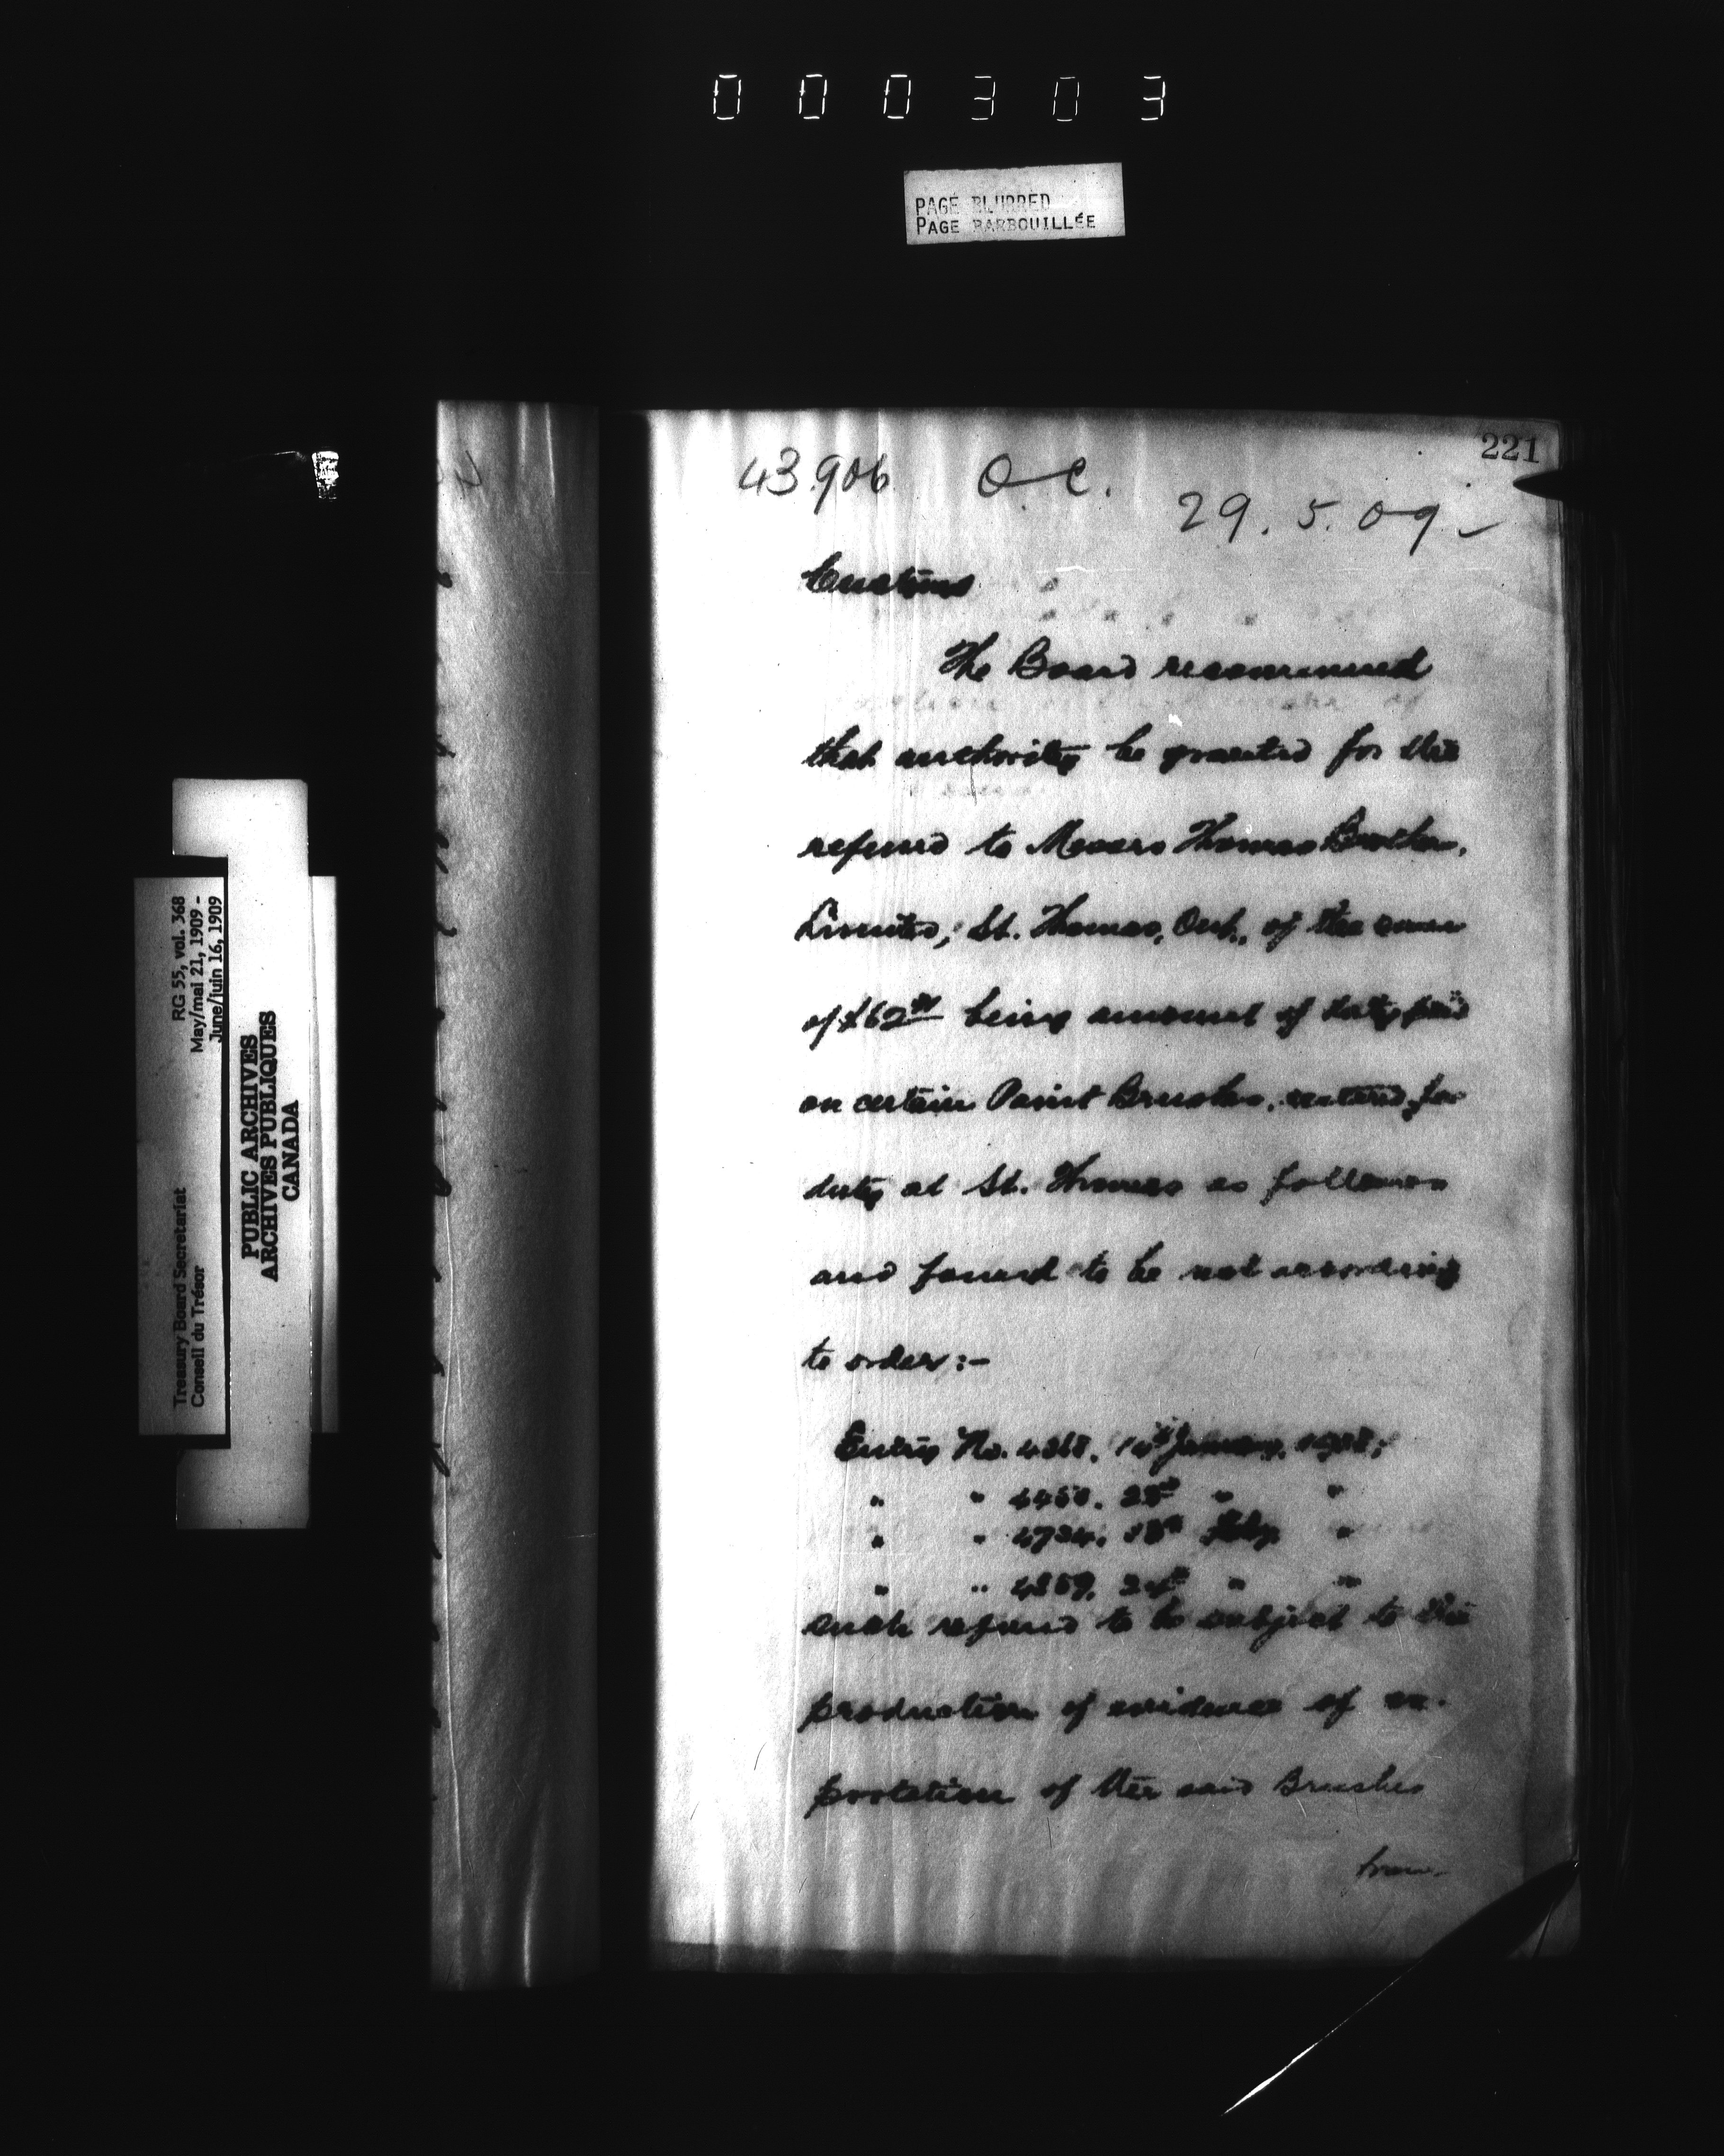 000303
PAGE BLURRED
PAGE BARBOUILLÉE
221
43.906 O.C. 29.5.09
Customs
The Board recommend
that authority be granted for the
refund to Messrs Thomas Brothers,
Limited, St. Thomas, Ont., of the sum
of $62 being amount of duty paid
on certain Paint Brushes, entered for
duty at St. Thomas as follows
and found to be not according
to order:-
Entry No. January,
" " "
" " 4724, 18th Feby "
" " 24th " "
such refund to be subject to the
production of evidence of ex-
portation of the said Brushes
from
Treasury Board Secretariat RG 55, vol. 368
Conseil du Trésor May/mai 21, 1909 -
June/juin 16, 1909
PUBLIC ARCHIVES
ARCHIVES PUBLIQUES
CANADA